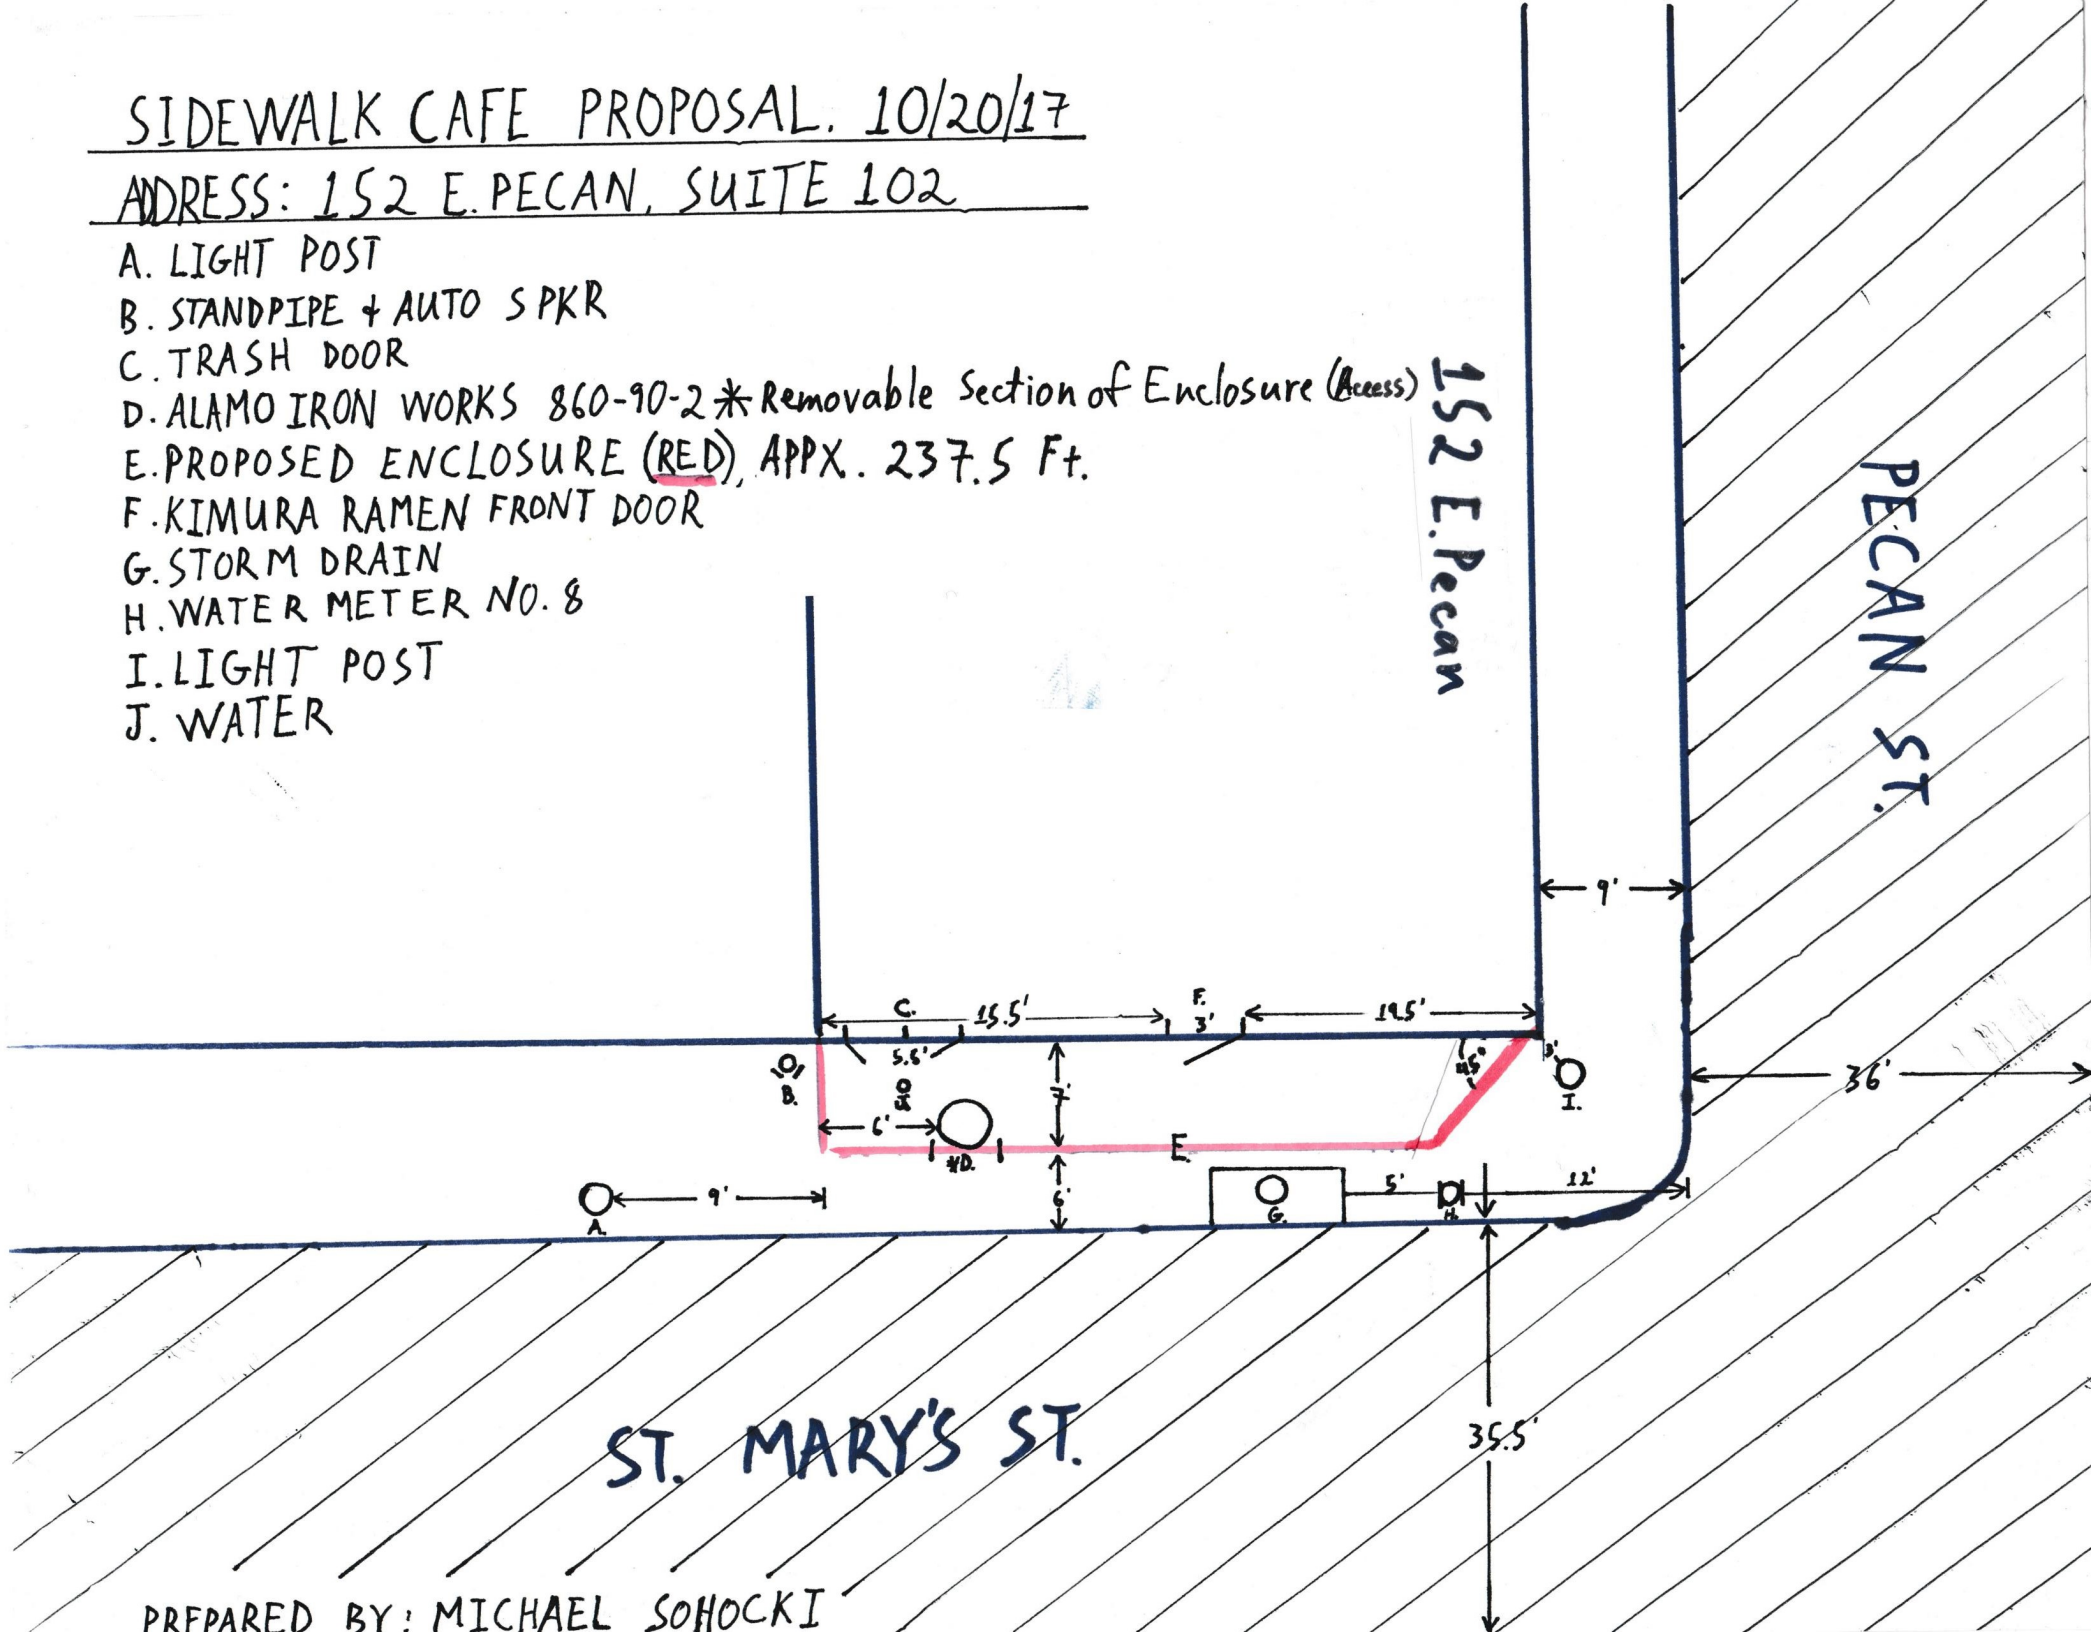 SIDEWALK CAFE PROPOSAL. 10/20/17
ADDRESS: 152 E. PECAN, SUITE 102
A. LIGHT POST
B. STANDPIPE & AUTO SPKR
C. TRASH DOOR
D. ALAMO IRON WORKS 860-90-2 * Removable Section of Enclosure (Access)
E. PROPOSED ENCLOSURE (RED), APPX. 237.5 Ft.
F. KIMURA RAMEN FRONT DOOR
G. STORM DRAIN
H. WATER METER NO. 8
I. LIGHT POST
J. WATER
152 E. Pecan
PECAN ST.
9'
C.
15.5'
F.
3'
19.5'
5.5'
B.
J.
7'
45°
3'
I.
36'
6'
*D.
E.
A.
9'
6'
G.
5'
H.
12'
35.5'
ST. MARY'S ST.
PREPARED BY: MICHAEL SOHOCKI